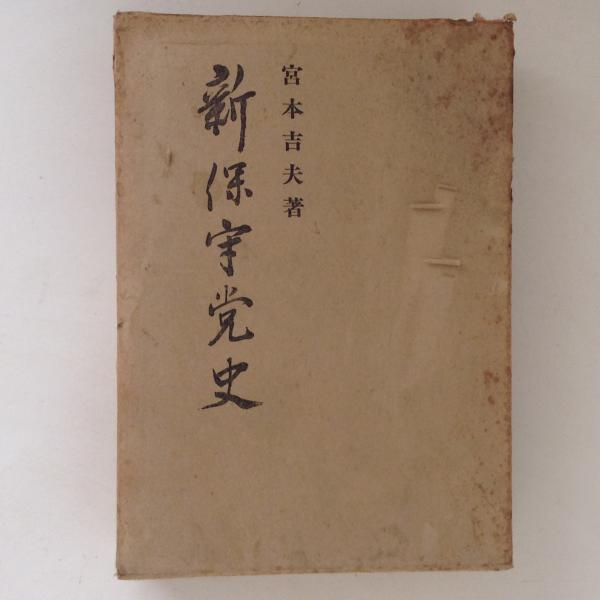 宮本吉夫著
新保守党史